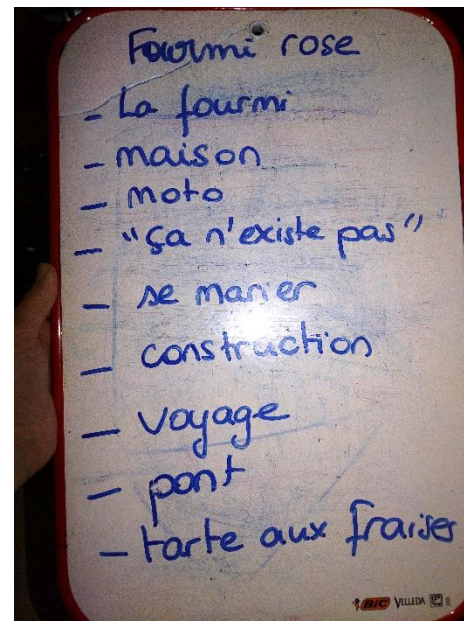 Fourmi rose
- La fourmi
- maison
- moto
- "ça n'existe pas"
- se marier
- construction
- voyage
- pont
- tarte aux fraises
BIC VELLEDA